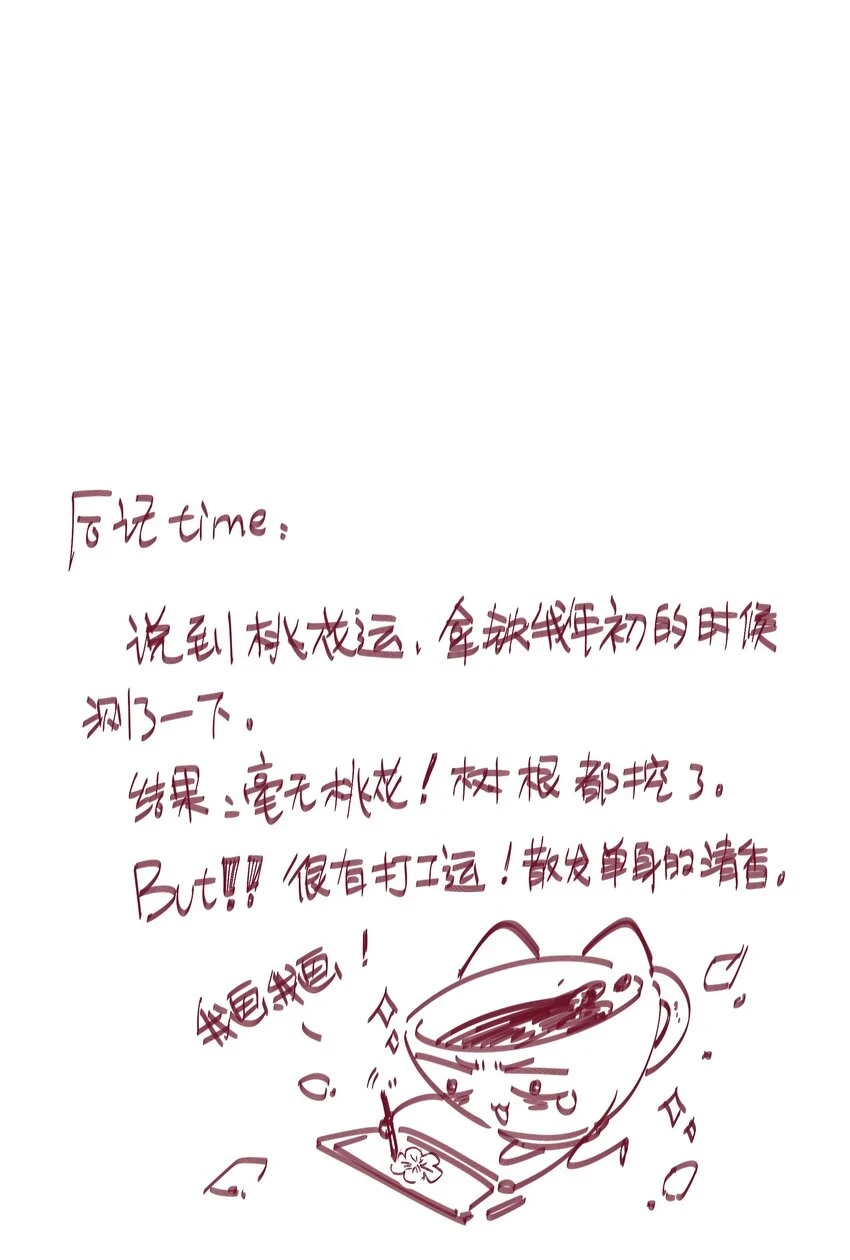 后记time:
说到桃花运、拿铁我年初的时候
测了一下。
结果:毫无桃花!树根都挖了。
But!!! 很有打工运!散发单身的清香。
我画我画!